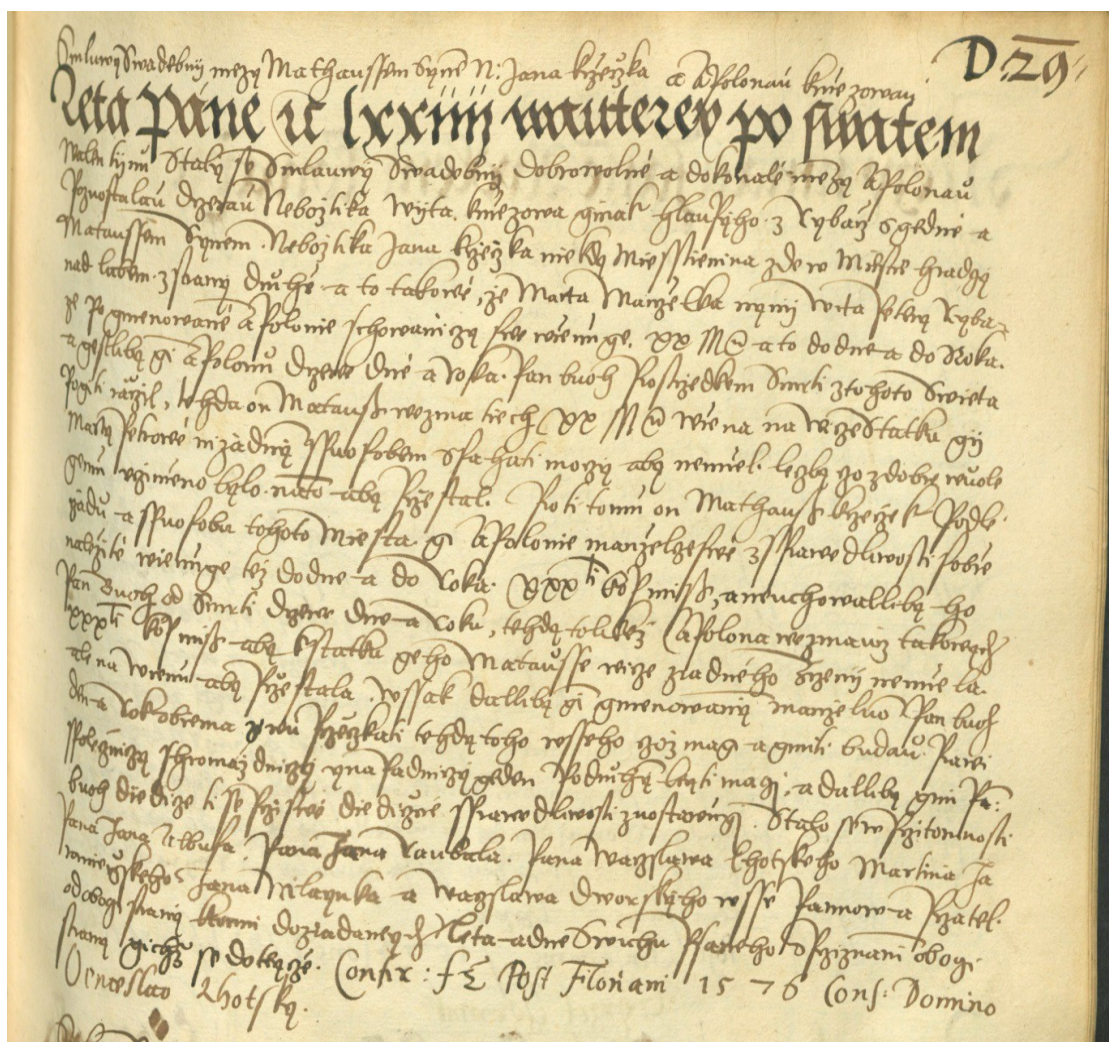 Smluwy Swadebnij mezy Mathaussem Synem N: Jana krzeczka a Apolonau knezowau
D. 29
Leta Páne ıc lxxiiij wautterey po swatem
Walentynu Staly se Smlauwy Swadebny dobrowolné a dokonalé mezy Apolonau
Pozuostalau dzerau Neboztika Wyta knezowa ginak hlaupyho z Rybarz s gedné a
Mataussem Synem Neboztika Jana krzeczka niekdy Miesstienina zde w Miestie hradczy
nad labem z strany druhé a to takowé, ze Marta Manzelka nynij Wita Petery Ryba-
ze Pogmenowané Apolonie schowaniczy swe wienuge. XX M a to do dne a do Roka.
a gestlizby gi Apolonu drzewe dne a roka Pan buoh Prostrzedkem Smrti z tohoto Swieta
Pogiti raczil, tehda on Mataussz wezma tiech XX M wiena na wicze Statku gij
Marty Petrowé nizadnym zpuosobem sahati moczy aby nemiel. leczby go z dobre wuole
gemu uczinieno bylo. na to aby przestal. Proti tomu on Mathaussz krzeczek Podle
rzadu a spuosobu tohoto Miesta gi Apolonie manzelcze swe z sprawedliwosti sobie
nalezité wienuge tez do dne a do roka. XXX ti kop missz, a neuchowalliby ho
Pan Buoh od Smrti drzewe dne a roku, tehdy tolikez Apolona wezmauc takowych
XXX ti kop missz aby k statku geho Mataussse wicze zadneho Rzizenij nemiela.
ale na wienu aby przestala. wssak dalliby gi gmenowanym manzeluom Pan buoh
den a rok obiema zywu przeczkati tehdy toho wsseho czoz magi a gmiti budau Prawi
spoleczniczy shromazdniczy y napadniczy geden Po druhem byti magi, a dalliby gim Pan
buoh diedicze ti se przi swe diediczne sprawedliwosti zuostawugi. Stalo se w Przitomnosti
Pana Jana Albusa. Pana Jana Raubala. Pana Waczslawa Lhotskeho Martina Ja
Jana Wlaynka a Waczslawa Dworskyho wsse Panuow a Przatel
od obogi strany k tomu dozadanych Leta a dne Swrchu Psaneho S Przyznanim obogi
strany gichz se dotycze. Confir: f Post Floriani 1576 Cons: Domino
Venceslao Lhotsky.